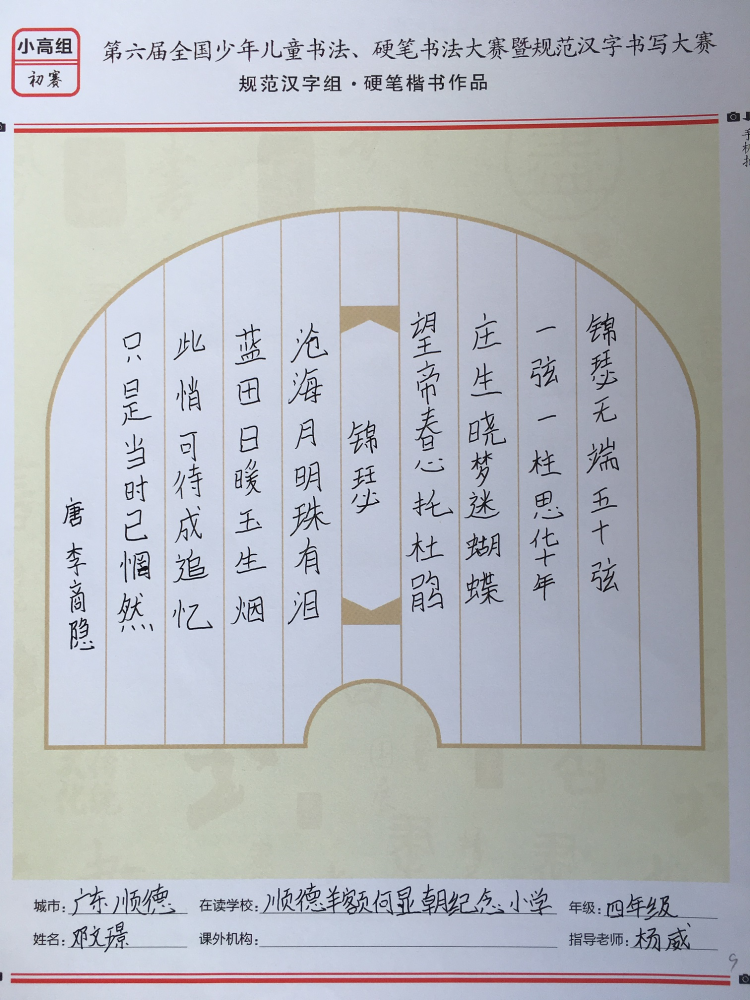 小高组
初赛
第六届全国少年儿童书法、硬笔书法大赛暨规范汉字书写大赛
规范汉字组·硬笔楷书作品
手机拍
锦瑟无端五十弦
一弦一柱思华年
庄生晓梦迷蝴蝶
望帝春心托杜鹃
锦瑟
沧海月明珠有泪
蓝田日暖玉生烟
此悄可待成追忆
只是当时已惘然
唐 李商隐
城市:广东顺德 在读学校:顺德羊额何显朝纪念小学 年级:四年级
姓名:邓文璟 课外机构: 指导老师:杨威
9